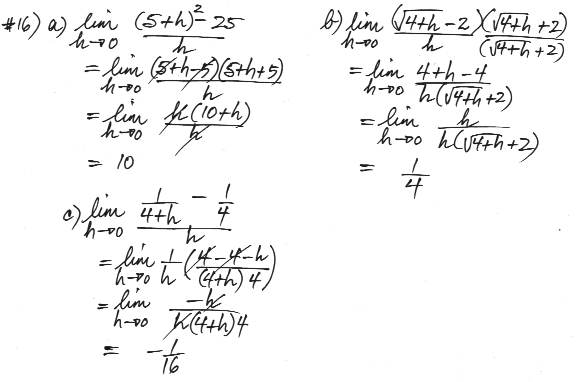 #16) a) lim h→0 ((5+h)² - 25)/h
= lim h→0 ((5+h-5)(5+h+5))/h
= lim h→0 (h(10+h))/h
= 10
b) lim h→0 (√(4+h) - 2)/h · (√(4+h) + 2)/(√(4+h) + 2)
= lim h→0 (4+h-4)/(h(√(4+h) + 2))
= lim h→0 h/(h(√(4+h) + 2))
= 1/4
c) lim h→0 (1/(4+h) - 1/4)/h
= lim h→0 1/h ((4-4-h)/((4+h)4))
= lim h→0 (-h)/(h(4+h)4)
= -1/16